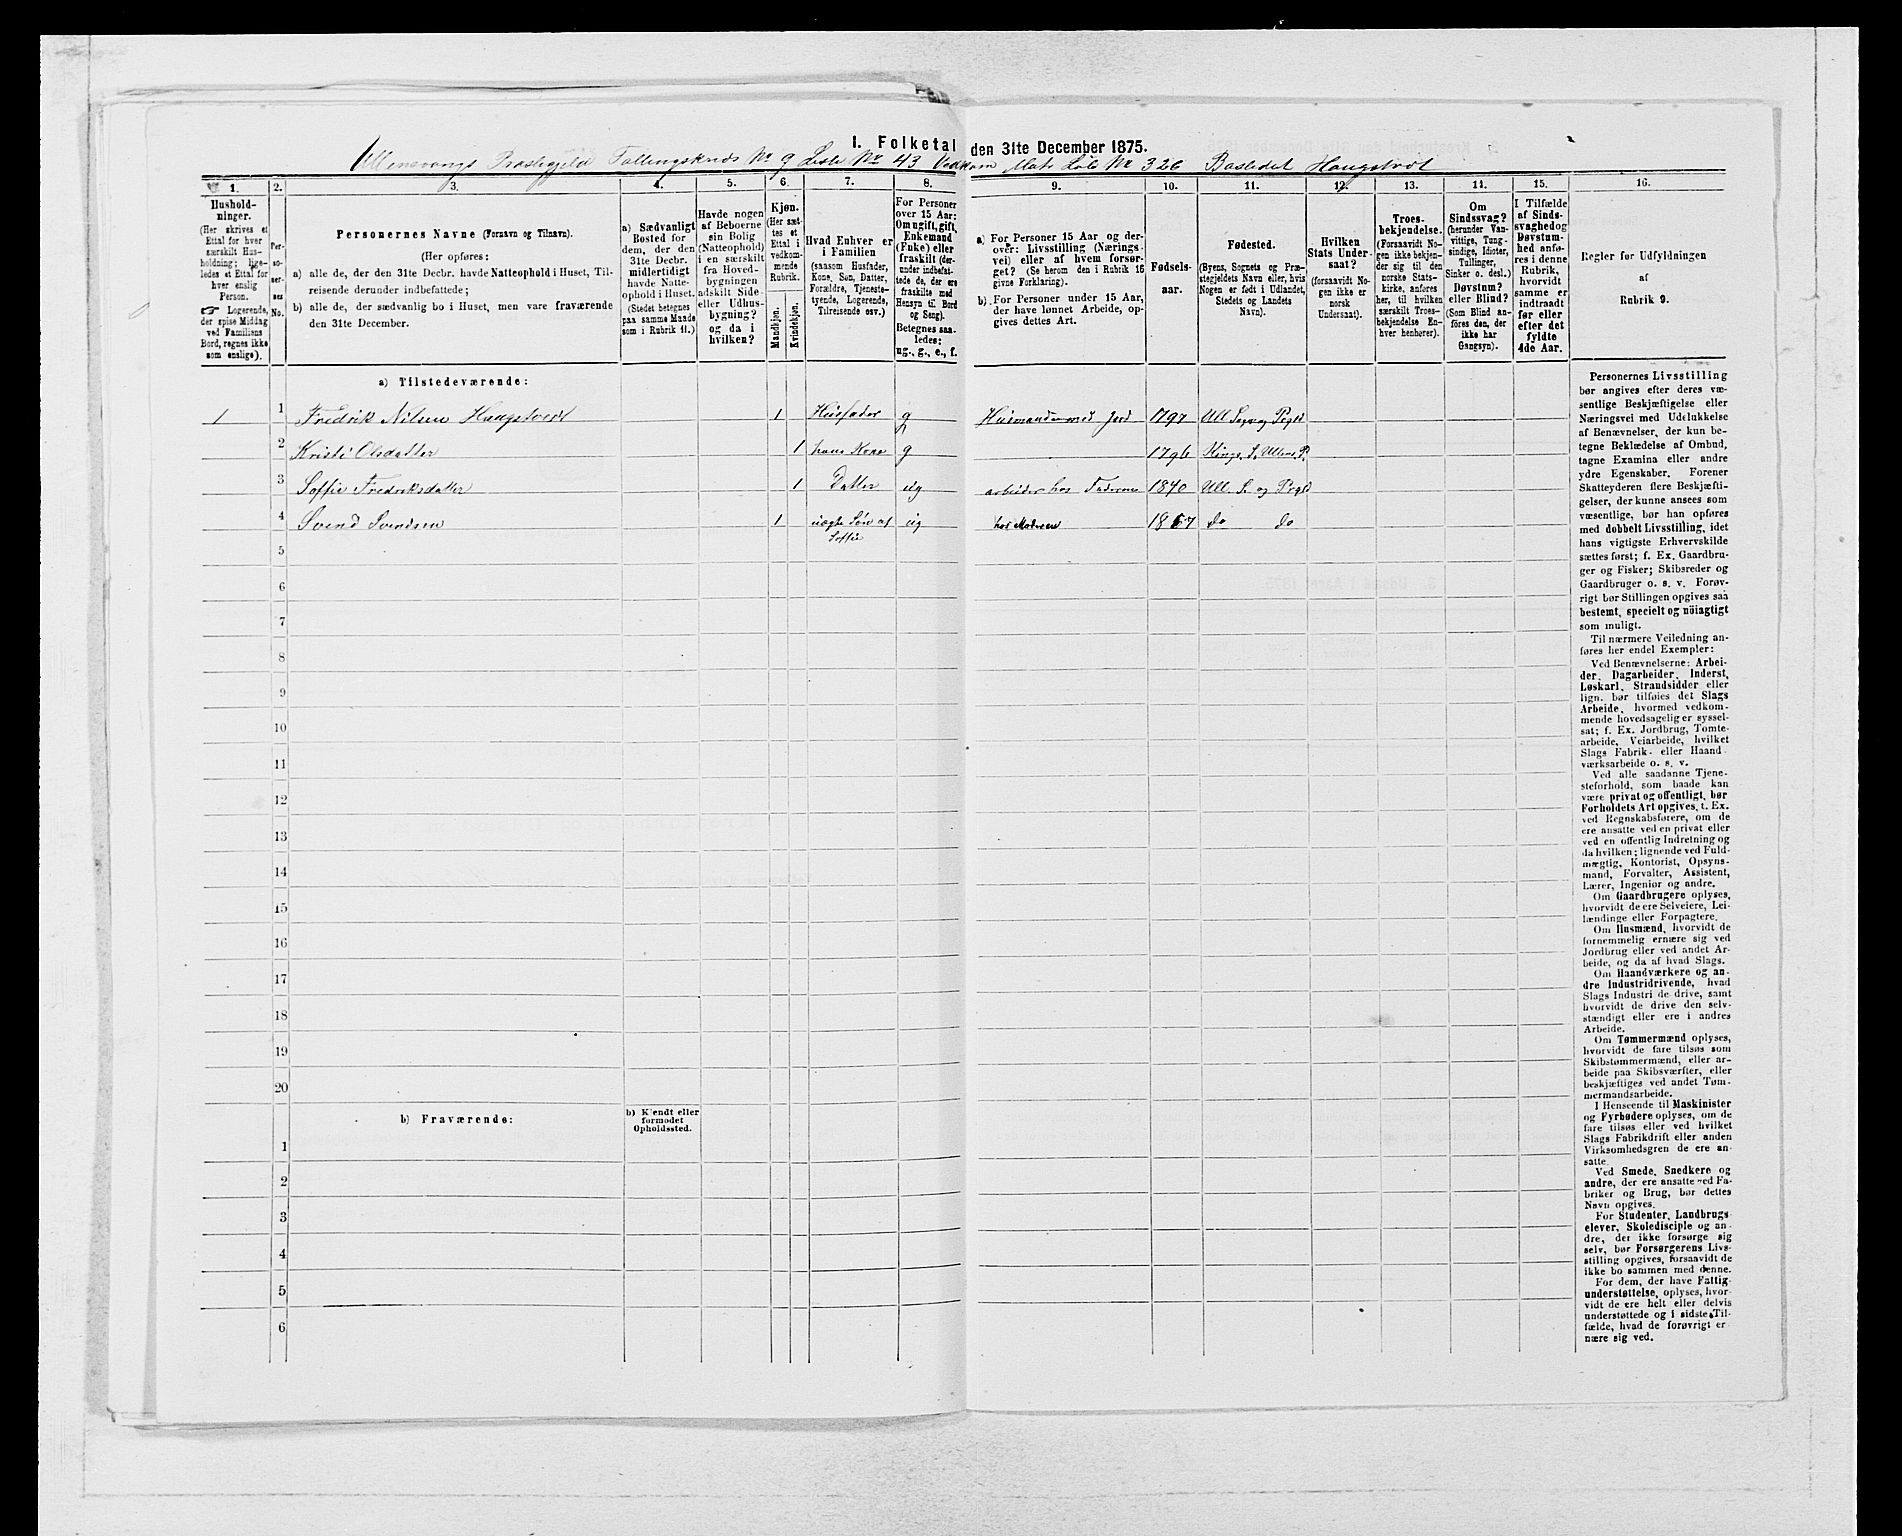 I. Folketal den 31te December 1875.
Ullensvangs Præstegjeld Tællingskreds No 9 Liste No 43 Vedkom Matr. Løb No 326 Bostedet Haugstvedt
1. 2. 3. 4. 5. 6. 7. 8. 9. 10. 11. 12. 13. 14. 15. 16.
Hushold-
ninger.
(Her skrives et
Ettal for hver
særskilt Hus-
holdning; lige-
ledes et Ettal for
hver enslig
Person.
☞ Logerende,
der spise Middag
ved Familiens
Bord, regnes ikke
som enslige).
Per-
so-
ner-
nes
No.
Personernes Navne (Fornavn og Tilnavn).
(Her opføres:
a) alle de, der den 31te Decbr. havde Natteophold i Huset, Til-
reisende derunder indbefattede;
b) alle de, der sædvanlig bo i Huset, men vare fraværende
den 31te December.
a) Sædvanligt
Bosted for
dem, der den
31te Decbr.
midlertidigt
havde Natte-
ophold i Huset.
(Stedet betegnes
paa samme Maade
som i Rubrik 11.)
Havde nogen
af Beboerne
sin Bolig
(Natteophold)
i en særskilt
fra Hoved-
bygningen
adskilt Side-
eller Udhus-
bygning?
og da i
hvilken?
Kjøn.
(Her sæt-
tes et
Ettal i
vedkom-
mende
Rubrik.
Mandkjøn.
Kvindekjøn.
Hvad Enhver er
i Familien
(saasom Husfader,
Kone, Søn, Datter,
Forældre, Tjeneste-
tyende, Logerende,
Tilreisende osv.)
For Personer
over 15 Aar:
Om ugift, gift,
Enkemand
(Enke) eller
fraskilt (der-
under indbefat-
tede de, der ere
fraskilte med
Hensyn til Bord
og Seng).
Betegnes saa-
ledes:
ug., g., e., f.
a) For Personer 15 Aar og der-
over: Livsstilling (Nærings-
vei) eller af hvem forsør-
get? (Se herom den i Rubrik 16
givne Forklaring).
b) For Personer under 15 Aar,
der have lønnet Arbeide, op-
gives dettes Art.
Fødsels-
aar.
Fødested.
(Byens, Sognets og Præ-
stegjeldets Navn eller, hvis
Nogen er født i Udlandet,
Stedets og Landets
Navn).
Hvilken
Stats Under-
saat?
(forsaavidt No-
gen ikke er
norsk
Undersaat).
Troes-
bekjendelse.
(Forsaavidt No-
gen ikke bekjen-
der sig til den
norske Stats-
kirke, anføres
her, til hvilken
særskilt Troes-
bekjendelse En-
hver henhører).
Om
Sindssvag?
(herunder Van-
vittige, Tung-
sindige, Idioter,
Tullinger,
Sinker o. desl.)
Døvstum?
eller Blind?
(Som Blind an-
føres den, der
ikke har
Gangsyn).
I Tilfælde
af Sinds-
svaghed og
Døvstum-
hed anfø-
res i denne
Rubrik,
hvorvidt
samme er
indtraadt
før eller
efter det
fyldte
4de Aar.
Regler for Udfyldningen
af
Rubrik 9.
a) Tilstedeværende:
1 1 Fredrik Nilsen Haugstvedt 1 Husfader g Husmand med Jord 1797 Ull. Sogn og Pgld
2 Kristi Olsdatter 1 hans Kone g 1796 Kings. S. Ullens. P.
3 Soffie Fredriksdatter 1 Datter ug arbeider hos Faderen 1840 Ull. S. og Pgld
4 Svend Svendsen 1 uægte Søn af Soffie ug hos Moderen 1867 do do
5
6
7
8
9
10
11
12
13
14
15
16
17
18
19
20
b) Fraværende:
b) Kjendt eller
formodet
Opholdssted.
1
2
3
4
5
6
Personernes Livsstilling
bør angives efter deres væ-
sentlige Beskjæftigelse eller
Næringsvei med Udelukkelse
af Benævnelser, der kun be-
tegne Beklædelse af Ombud,
tagne Examina eller andre
ydre Egenskaber. Forener
Skatteyderen flere Beskjæfti-
gelser, der kunne ansees som
væsentlige, bør han opføres
med dobbelt Livsstilling, idet
hans vigtigste Erhvervskilde
sættes først; f. Ex. Gaardbru-
ger og Fisker; Skibsreder og
Gaardbruger o. s. v. Forøv-
rigt bør Stillingen opgives saa
bestemt, specielt og nöiagtigt
som muligt.
Til nærmere Veiledning an-
føres her endel Exempler:
Ved Benævnelserne: Arbei-
der, Dagarbeider, Inderst,
Løskarl, Strandsidder eller
lign. bør tilføies det Slags
Arbeide, hvormed vedkom-
mende hovedsagelig er syssel-
sat; f. Ex. Jordbrug, Tomte-
arbeide, Veiarbeide, hvilket
Slags Fabrik- eller Haand-
værksarbeide o. s. v.
Ved alle saadanne Tjene-
steforhold, som baade kan
være privat og offentligt, bør
Forholdets Art opgives, t. Ex.
ved Regnskabsførere, om de
ere ansatte ved en privat eller
ved en offentlig Indretning og
da hvilken; lignende ved Fuld-
mægtig, Kontorist, Opsyns-
mand, Forvalter, Assistent,
Lærer, Ingeniør og andre.
Om Gaardbrugere oplyses,
hvorvidt de ere Selveiere, Lei-
lændinge eller Forpagtere.
Om Husmænd, hvorvidt de
fornemmelig ernære sig ved
Jordbrug eller ved andet Ar-
beide, og da af hvad Slags.
Om Haandværkere og an-
dre Industridrivende, hvad
Slags Industri de drive, samt
hvorvidt de drive den selv-
stændigt eller ere i andres
Arbeide.
Om Tømmermænd oplyses,
hvorvidt de fare tilsøs som
Skibstømmermænd, eller ar-
beide paa Skibsværfter, eller
beskjæftiges ved andet Tøm-
mermandsarbeide.
I Henseende til Maskinister
og Fyrbødere oplyses, om de
fare tilsøs eller ved hvilket
Slags Fabrikdrift eller anden
Virksomhedsgren de ere an-
satte.
Ved Smede, Snedkere og
andre, der ere ansatte ved Fa-
briker og Brug, bør dettes
Navn opgives.
For Studenter, Landbrugs-
elever, Skoledisciple og an-
dre, der ikke forsørge sig
selv, bør Forsørgerens Livs-
stilling opgives, forsaavidt de
ikke bo sammen med denne.
For dem, der have Fattig-
understøttelse, oplyses, hvor-
vidt de ere helt eller delvis
understøttede og i sidste Til-
fælde, hvad de forøvrigt er-
nære sig ved.